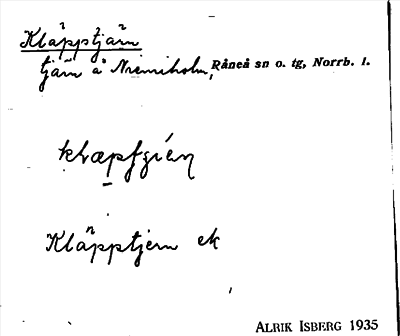 Kläpptjärn
tjärn å Niemiholm, Råneå sn o. tg, Norrb. l.
Kläpptjern ek
ALRIK ISBERG 1935